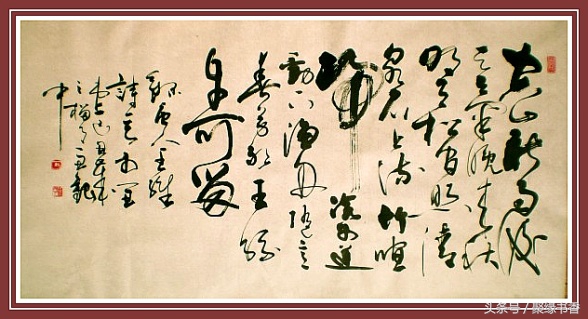 空山新雨後
天气晚来秋
明月松间照清
泉石上流竹喧
歸浣女莲
動下渔舟随意
春芳歇王孙
自可留
唐人王維
詩
头条号 / 聚缘书香